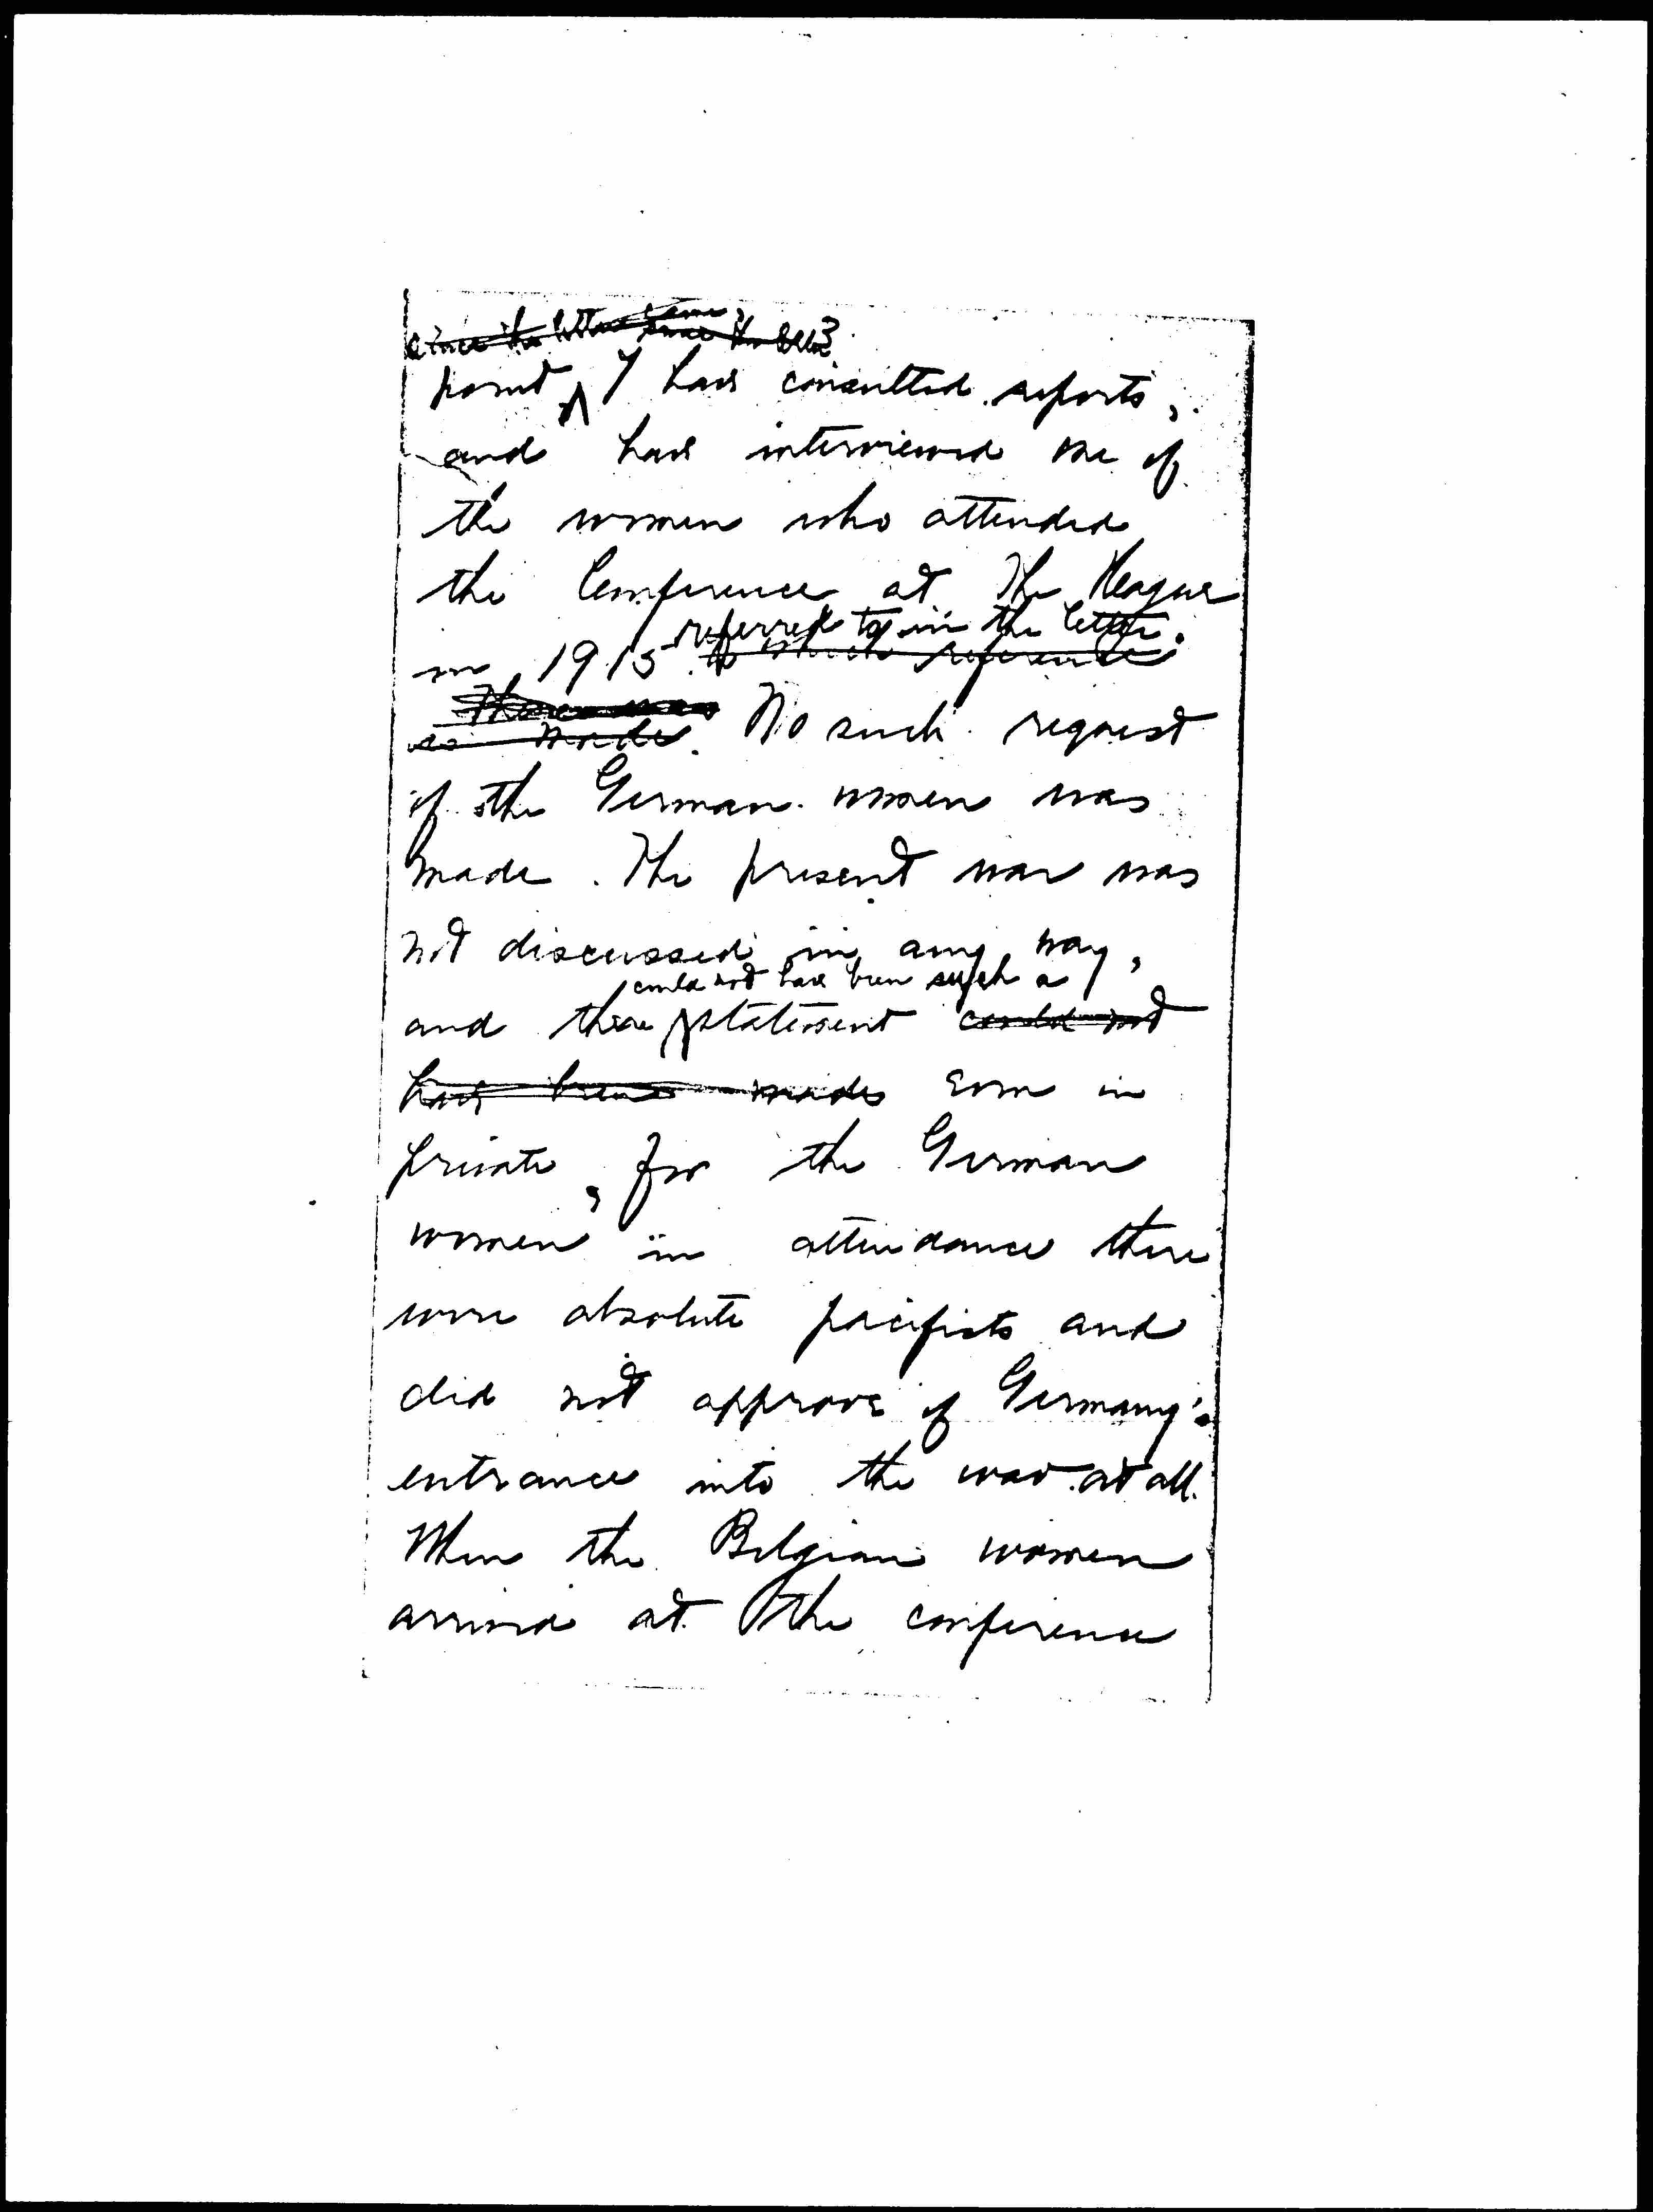 since the letter came, since the letter
point, I have consulted reports,
and have interviewed one of
the women who attended
the Conference at The Hague
referred to in the letter.
in 1915 to which reference
There was
is made. No such request
of the German women was
made. The present war was
not discussed in any way,
could not have been such a
and there statement could not
have been made even in
private, for the German
women in attendance there
were absolute pacifists and
did not approve of Germany's
entrance into the war at all.
When the Belgian women
arrived at the conference